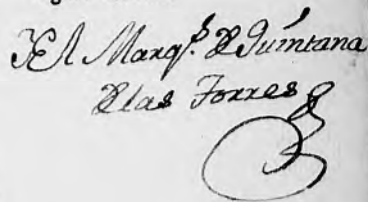 El Marqs. de Quintana
de las Torres